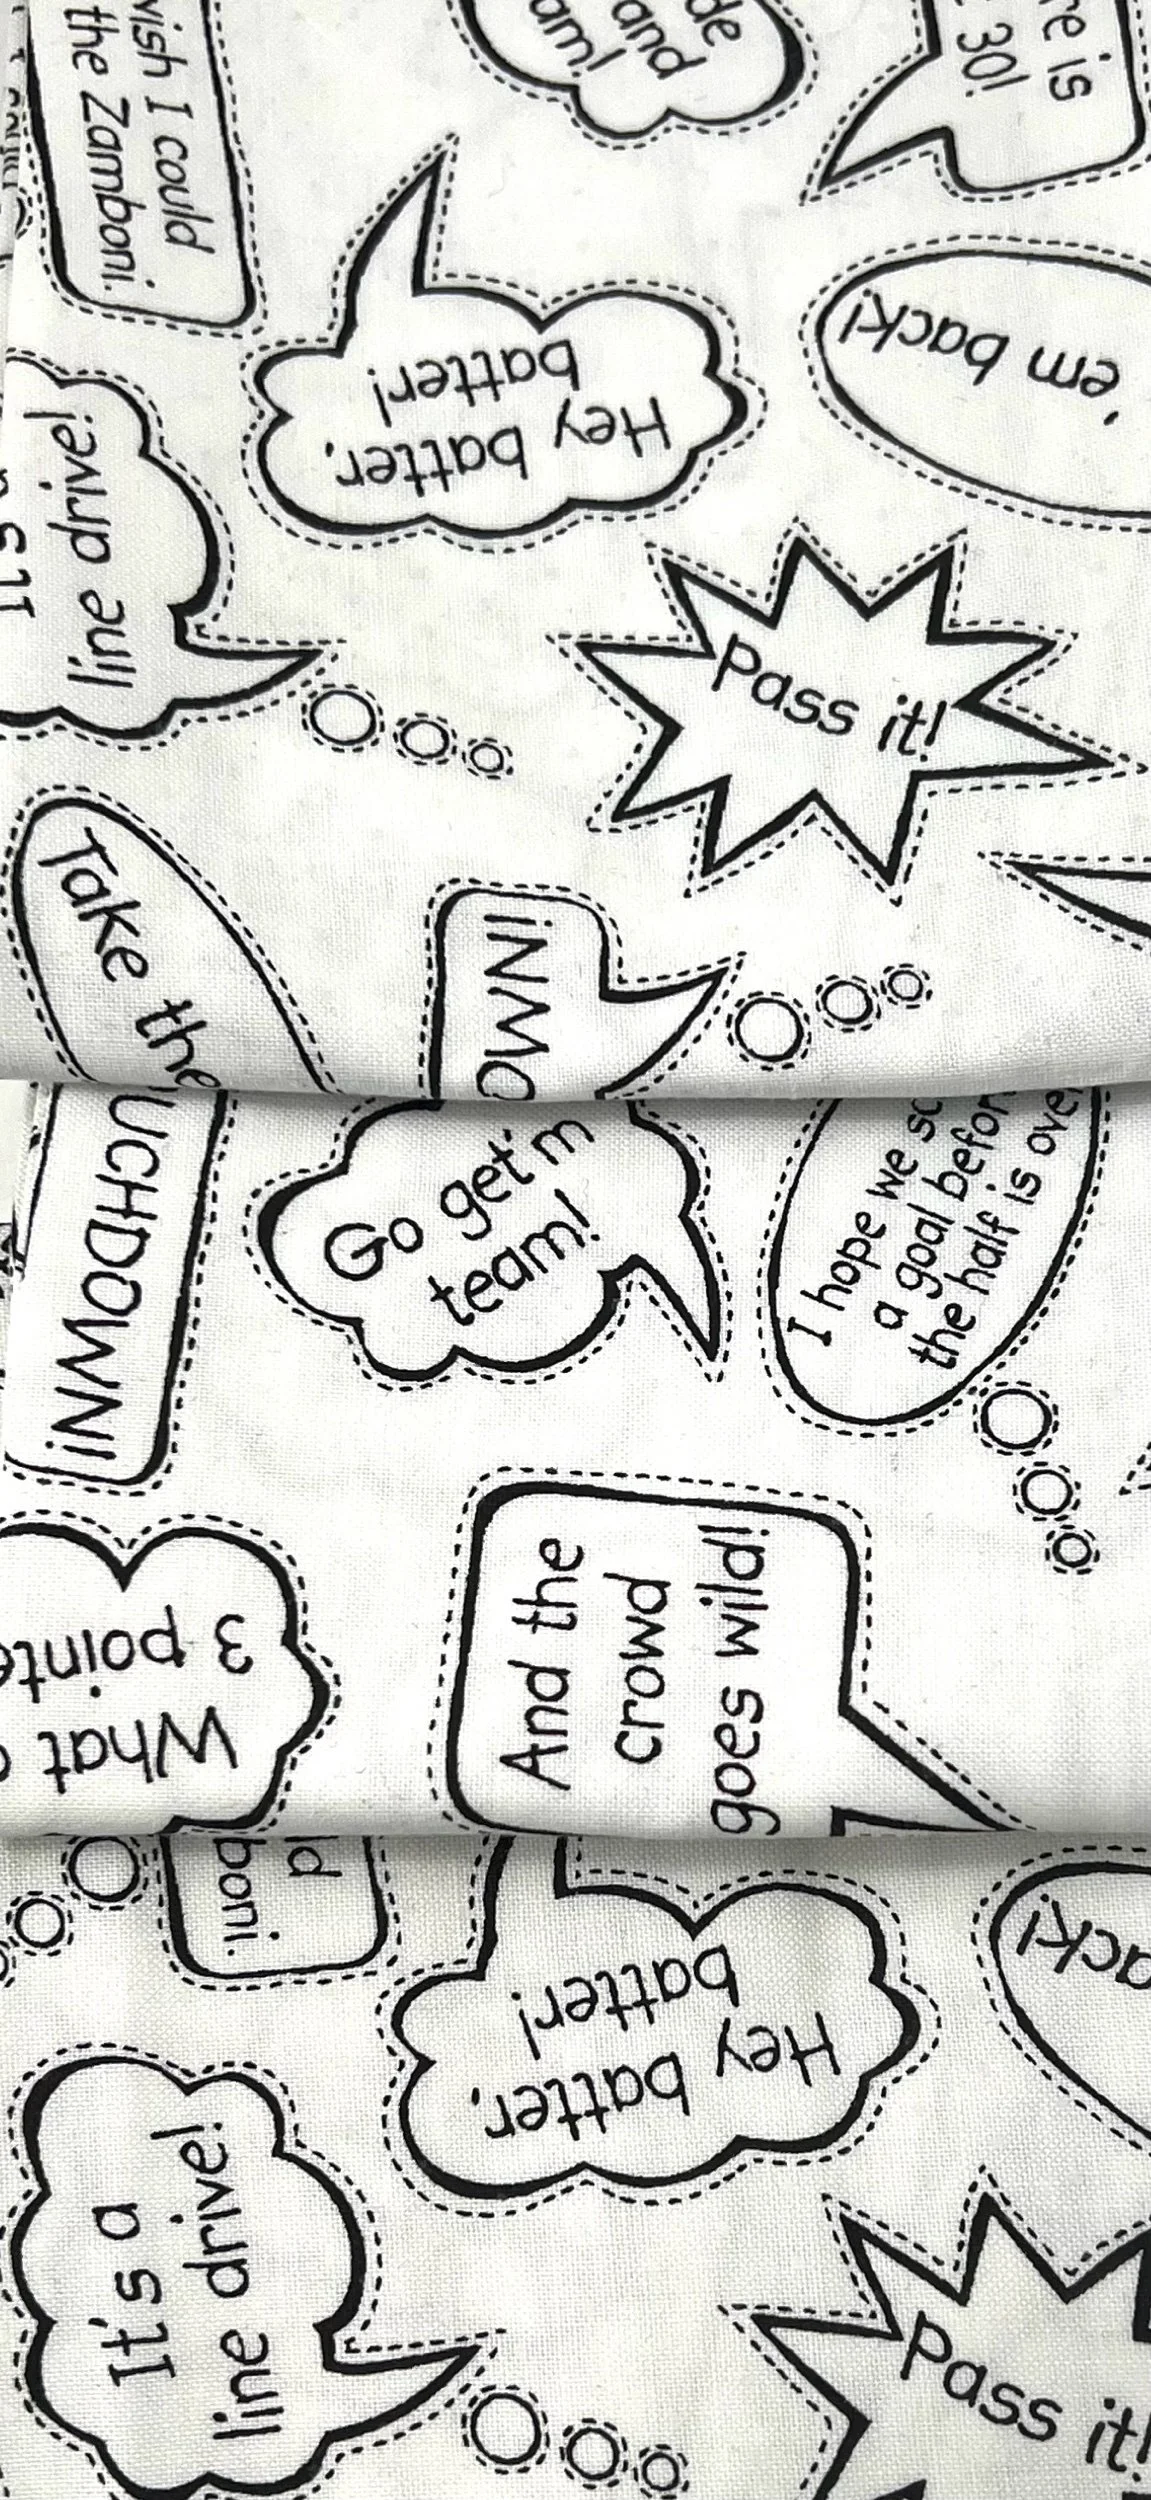 wish I could
the Zamboni.
de
and
am!
re is
30!
Hey batter,
batter!
'em back!
It's a
line drive!
Pass it!
Take the
OWN!
UCHDOWN!
Go get'm
team!
I hope we sc
a goal befor
the half is over
What a
3 pointe
And the
crowd
goes wild!
d
boni.
Hey batter,
batter!
ack!
It's a
line drive!
Pass it!